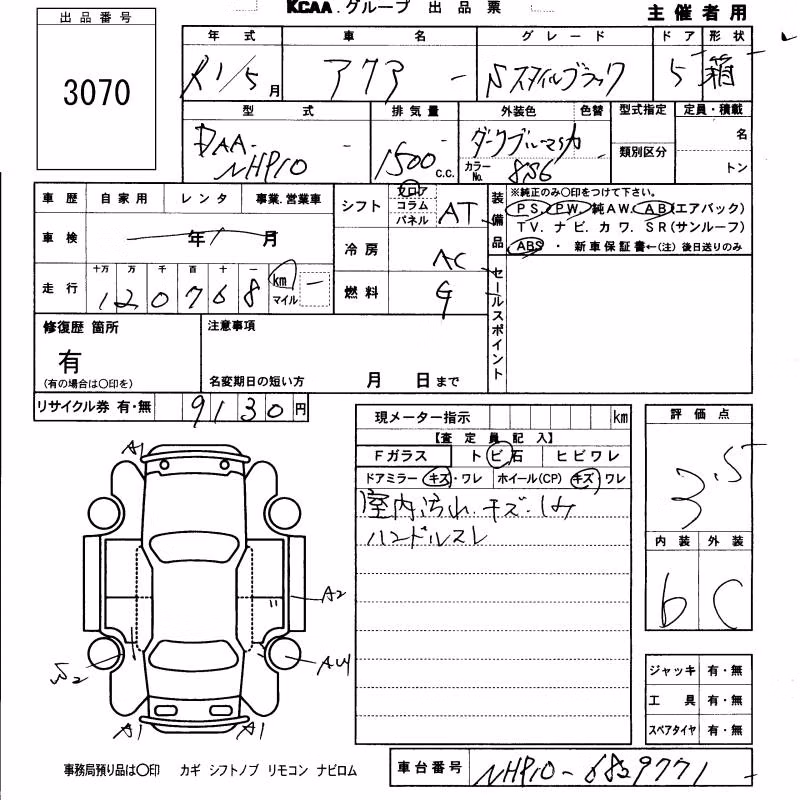 出品番号
3070
KCAA.グループ 出品票
主催者用
年式 車名 グレード ドア 形状
R1/5月 アクア - Sスタイルブラック 5 箱
型式 排気量 外装色 色替 型式指定 定員・積載
DAA-NHP10 - 1500 c.c. ダークブルーマイカ 類別区分 名
カラーNo. 8S6 トン
車歴 自家用 レンタ 事業.営業車
車検 年 月
走行 十万 万 千 百 十 一
120768 km マイル -
シフト フロア コラム パネル AT
冷房 AC
燃料 G
装備品
※純正のみ〇印をつけて下さい。
PS. PW. 純AW. AB(エアバック)
TV. ナビ. カワ. SR(サンルーフ)
ABS ・ 新車保証書←(注)後日送りのみ
セールスポイント
修復歴 箇所
有
(有の場合は〇印を)
注意事項
名変期日の短い方 月 日まで
リサイクル券 有・無 9130円
現メーター指示 km
【査定員記入】
Fガラス トビ石 ヒビワレ
ドアミラー キズ・ワレ ホイール(CP) キズ・ワレ
室内汚れ.キズ.シミ
ハンドルスレ
評価点
3.5
内装 外装
b C
A1
A2
S2
AU1
A1 A1
ジャッキ 有・無
工具 有・無
スペアタイヤ 有・無
事務局預り品は〇印 カギ シフトノブ リモコン ナビロム
車台番号 NHP10-6829771 -